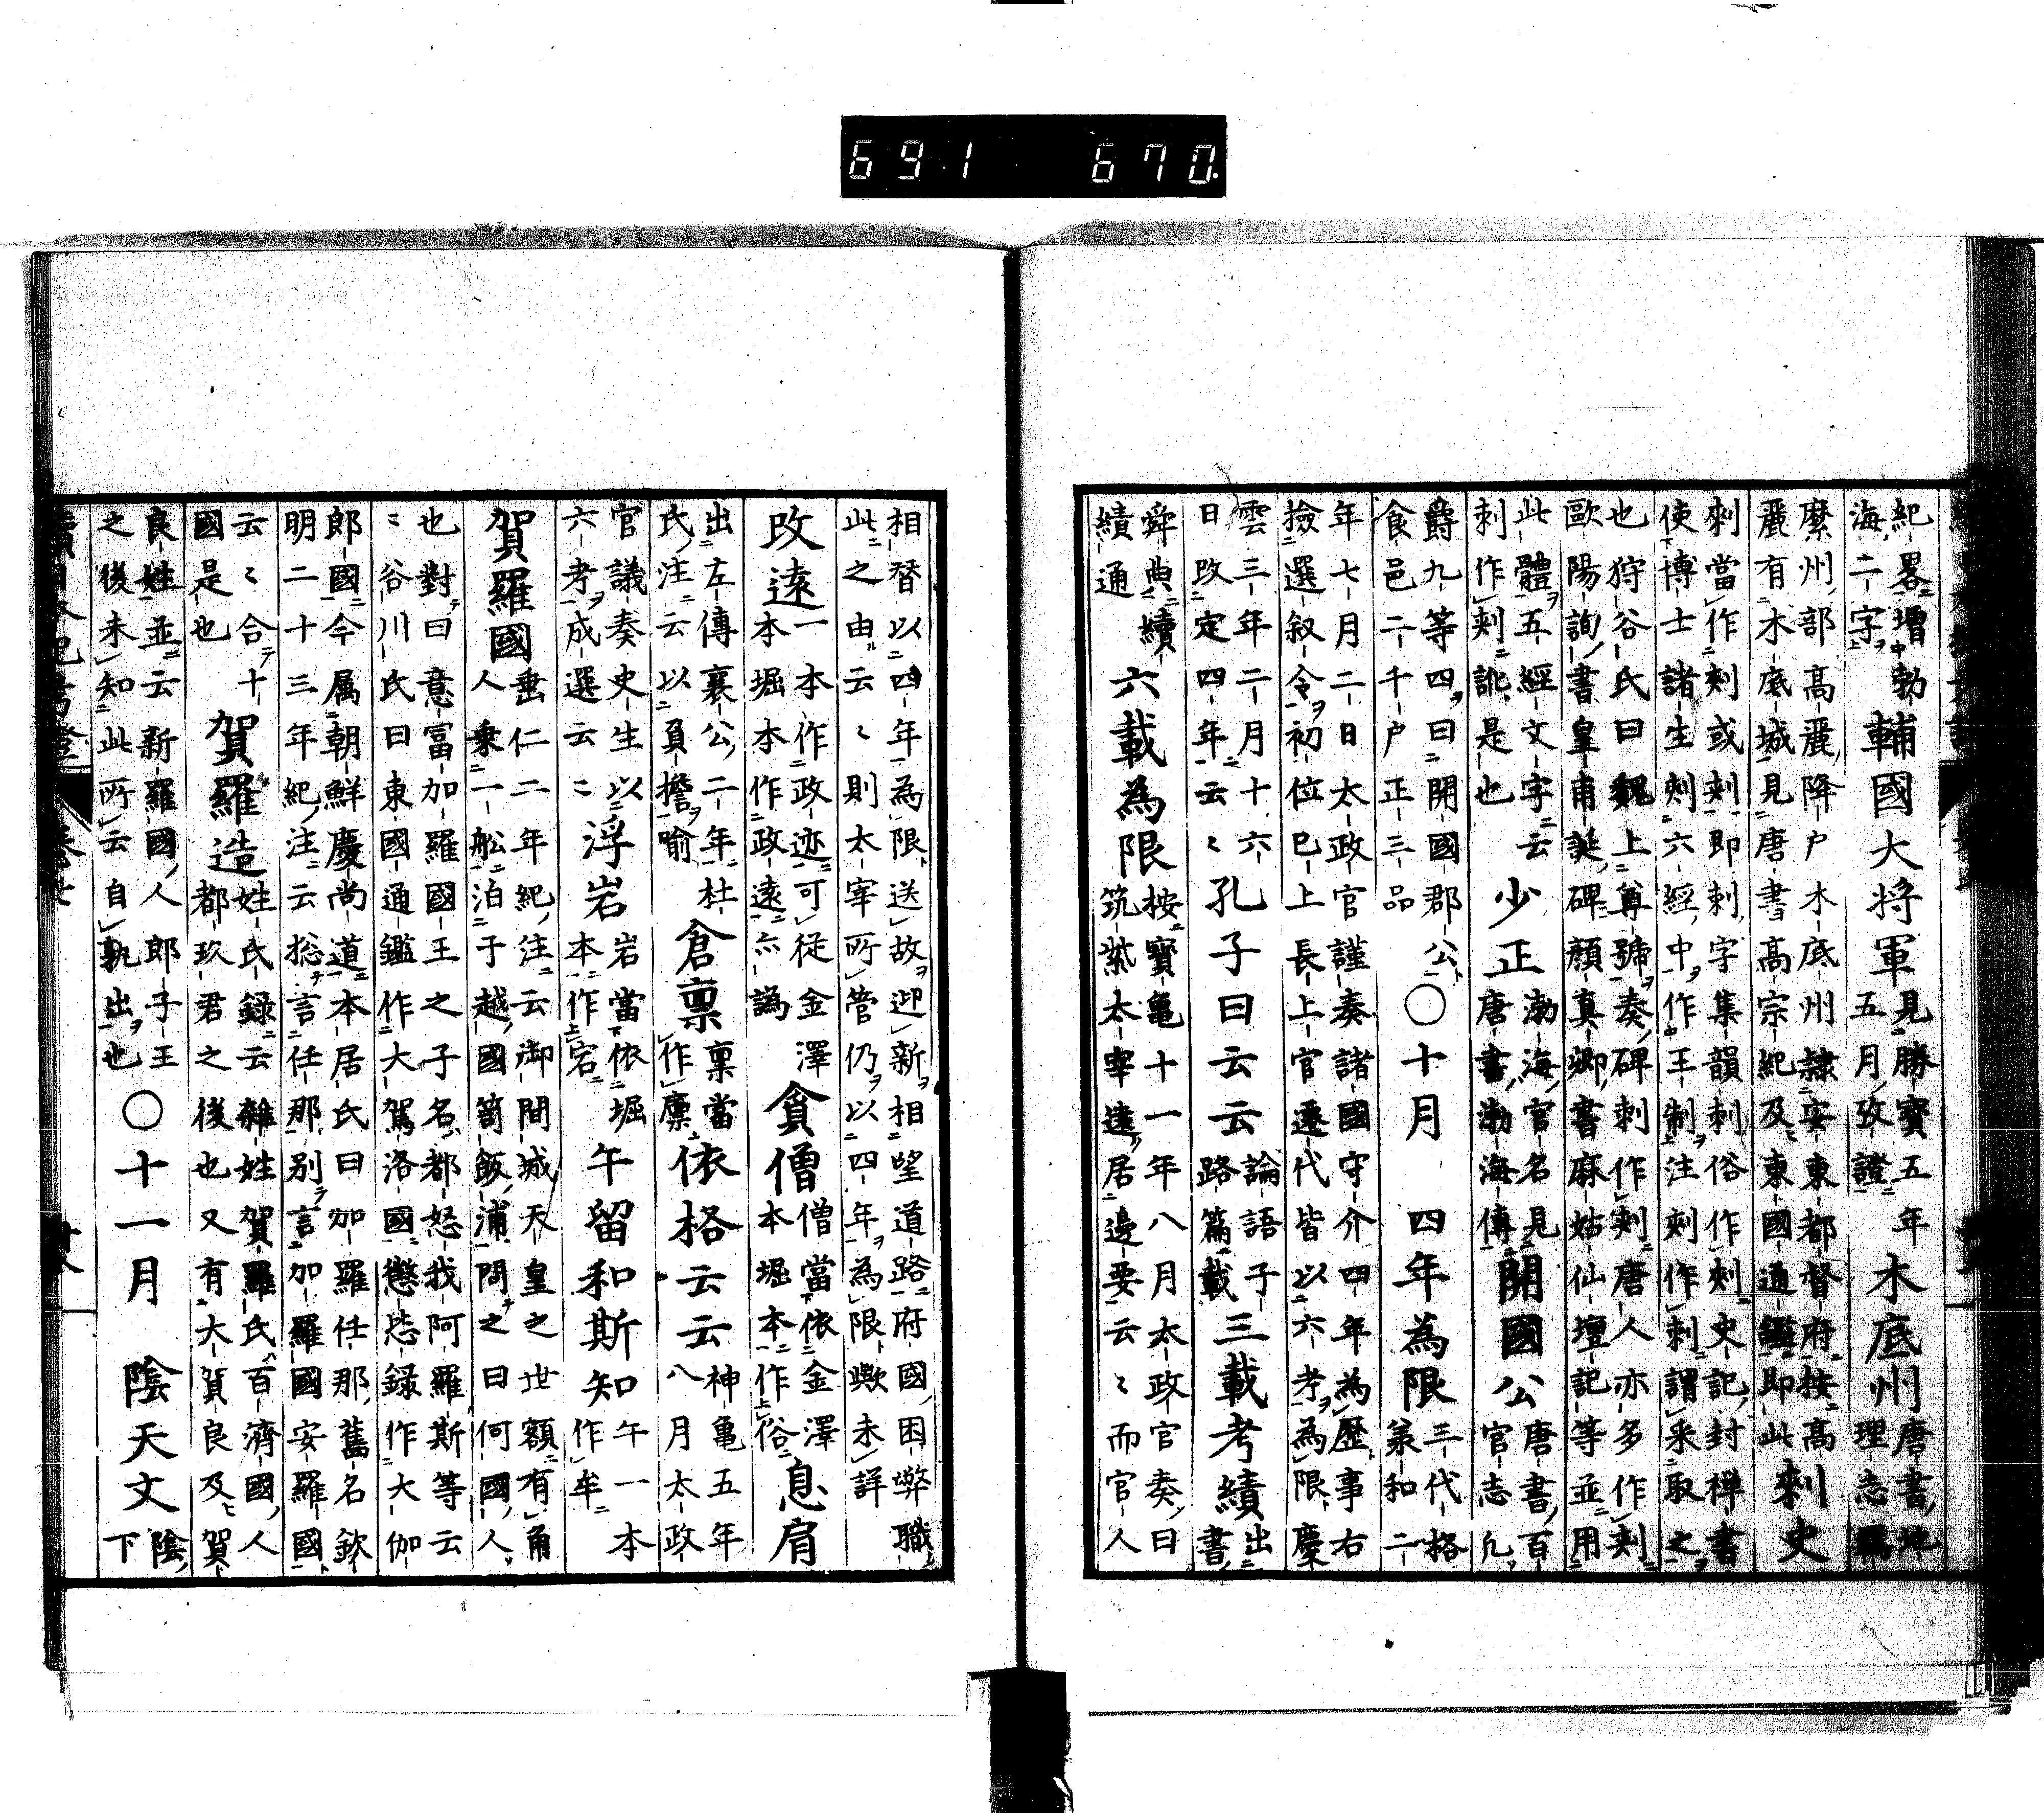 691 670
紀畧増勃
海二字
輔國大将軍
見勝寳五年
五月攷證
木底州
唐書地
理志羈
縻州部高麗降戸木底州隷安東都督府按高
麗有木底城見唐書高宗紀及東國通鑑即此
刺史
刺當作刾或刾即刺字集韻刺俗作刾史記封禅書
使博士諸生刾六經中作王制注刾作刺謂采取之
也狩谷氏曰魏上尊號奏碑刺作刾唐人亦多作刾
歐陽詢書皇甫誕碑顔真卿書麻姑仙壇記等並用
此體五經文字云
刺作刾訛是也
少正
渤海官名見
唐書渤海傳
開國公
唐書百
官志凢
爵九等四曰開國郡公
食邑二千戸正三品
○十月
四年為限
三代格
㐧和二
年七月二日太政官謹奏諸國守介四年為歴事右
撿選叙令初位已上長上官遷代皆以六考為限慶
雲三年二月十六
日改定四年云〻
孔子曰云云
論語子
路篇載
三載考績
出
書
舜典續
績通
六載為限
按寳亀十一年八月太政官奏曰
筑紫太宰遠居邊要云〻而官人
相替以四年為限送故迎新相望道路府國困弊職
此之由云〻則太宰所管仍以四年為限歟未詳
改遠
一本作政迹可従金澤
本堀本作政遠亦譌
貪僧
僧當依金澤
本堀本作俗
息肩
出左傳襄公二年杜
氏注云以負擔喻
倉禀
禀當
作廩
依格云云
神亀五年
八月太政
官議奏史生以
六考成選云〻
浮岩
岩當依堀
本作宕
午留和斯知
午一本
作牟
賀羅國
垂仁二年紀注云御間城天皇之世額有角
人乗一舩泊于越國笥飯浦問之曰何國人
也對曰意富加羅國王之子名都怒我阿羅斯等云
〻谷川氏曰東國通鑑作大駕洛國懲毖録作大伽
郎國今属朝鮮慶尚道本居氏曰加羅任那舊名欽
明二十三年紀注云捴言任那别言加羅國安羅國
云〻合十
國是也
賀羅造
姓氏録云雜姓賀羅氏百濟國人
都玖君之後也又有大賀良及賀
良姓並云新羅國人郎子王
之後未知此所云自孰出也
○十一月
陰天文
陰
下